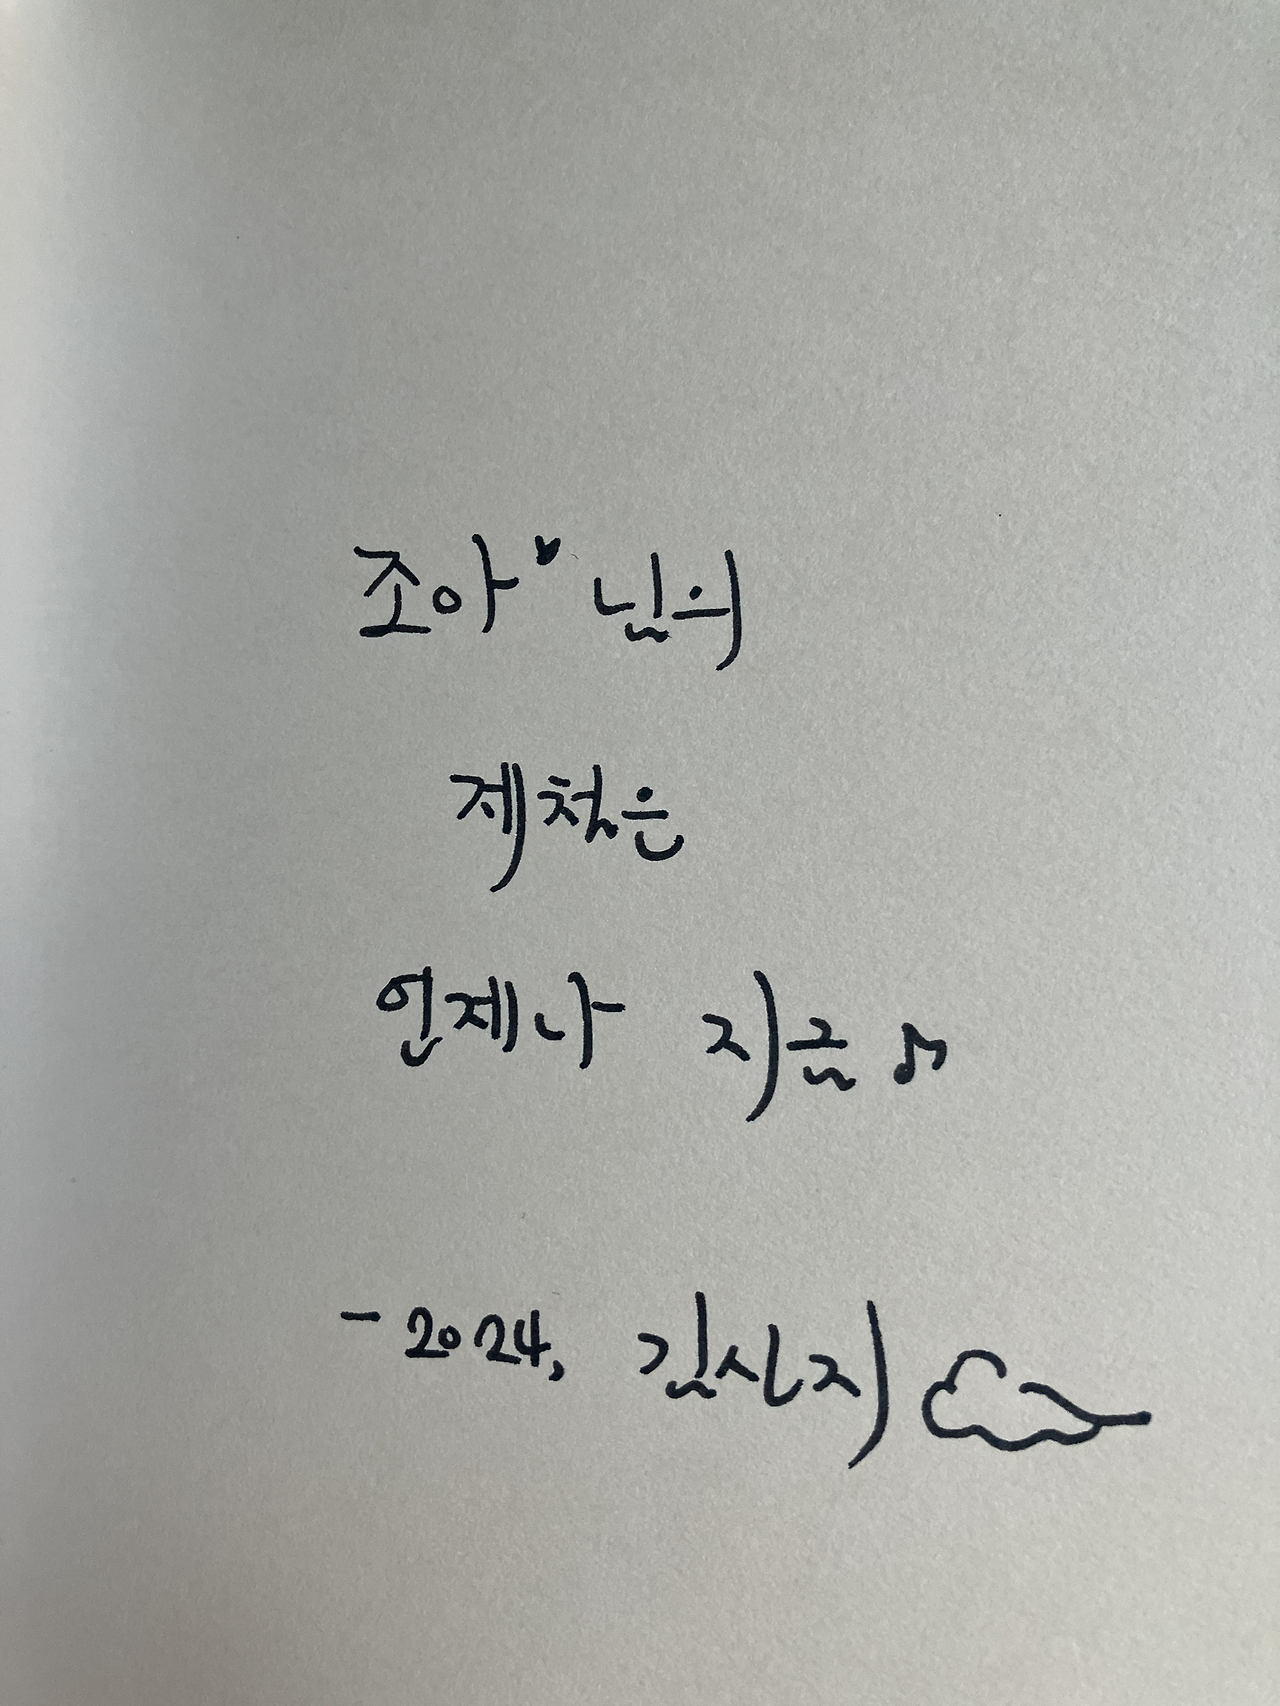 조아♥ 님의
제철은
언제나 지금♫
- 2024, 김신지